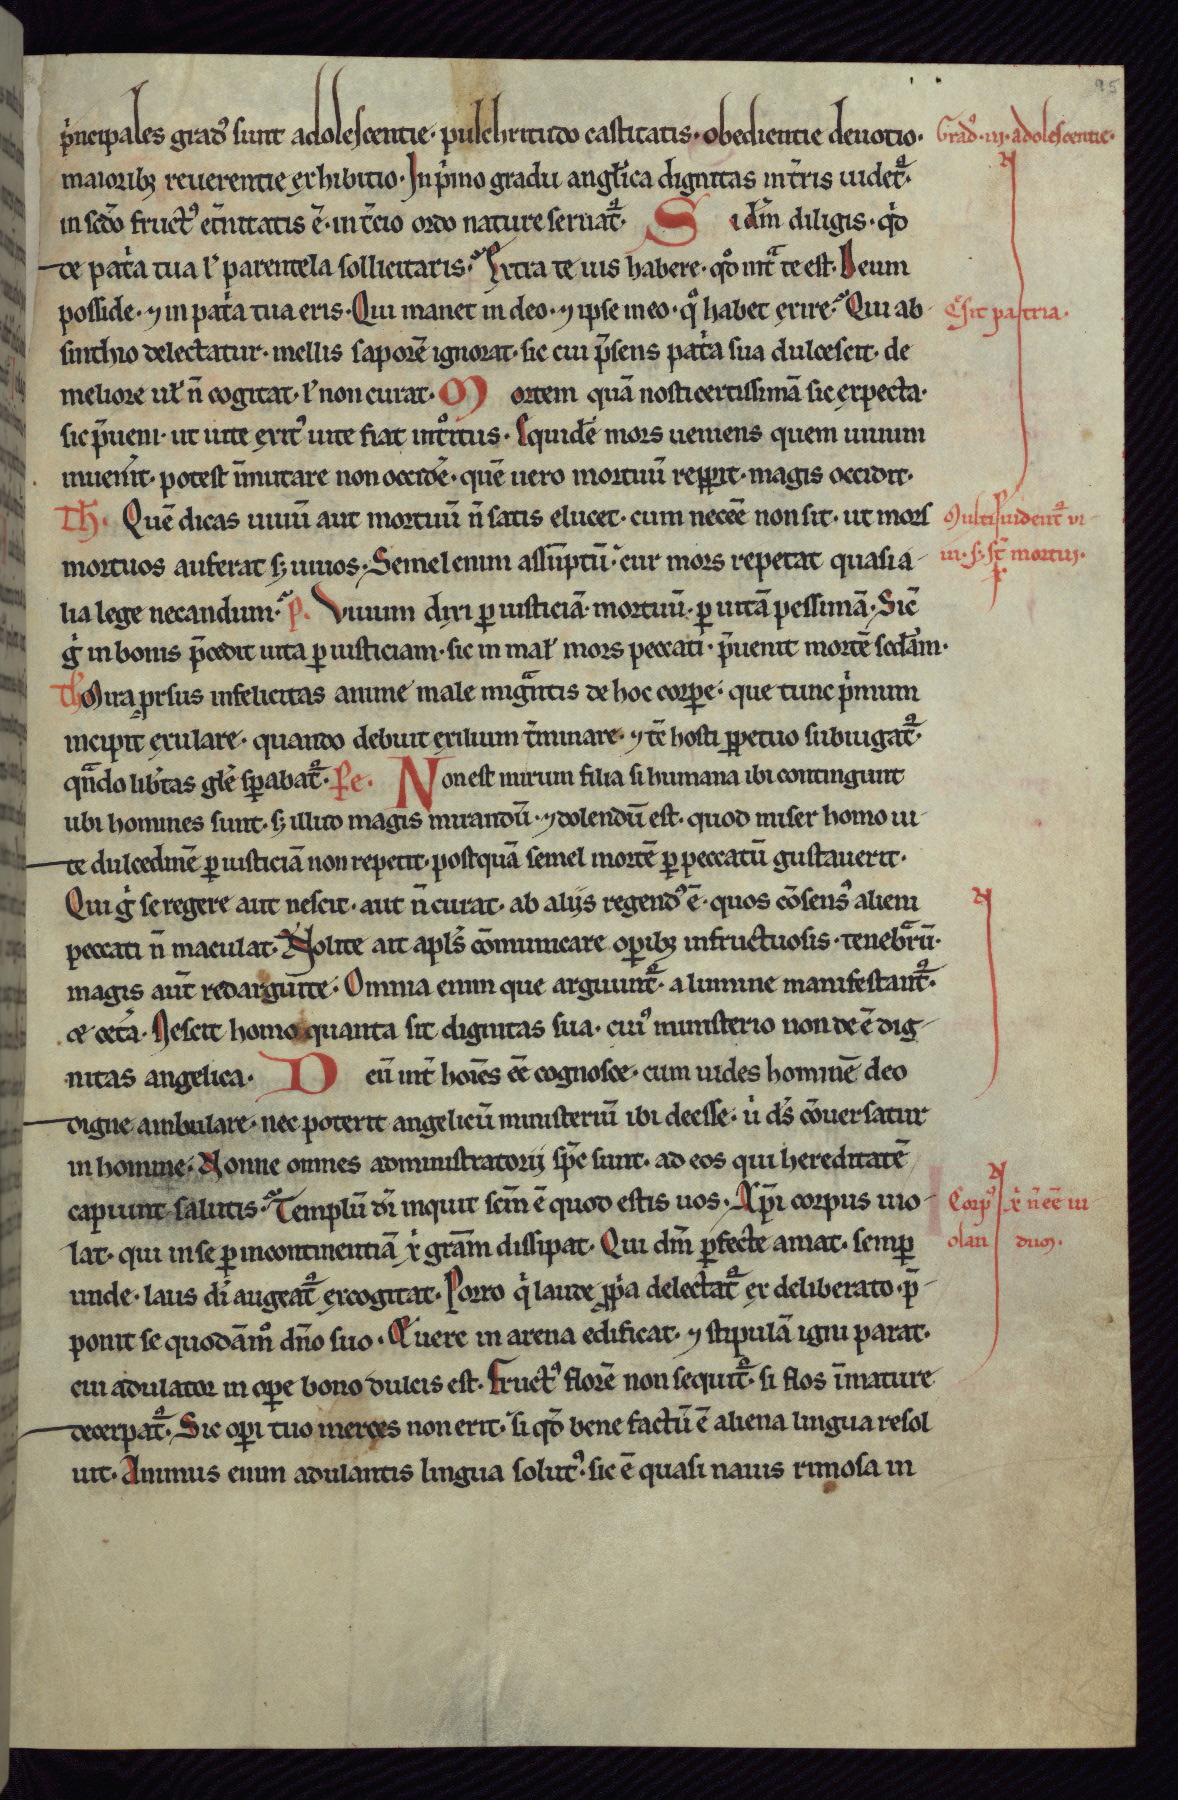 p̾ncipales gradꝰ sunt adolescentie· pulchritudo castitatis· obedientie deuotio·
Gradꝰ·iii·adolescentie·
maioribꝫ reuerentie exhibitio· In p̾mo gradu angl̾ica dignitas in t̾ris uidet᷑·
in scd̾o fruct᷒ et̾nitatis ē· in t̾cio ordo nature seruat᷑· Si dn̄m diligis· qͥd
de pat̾a tua l̾ parentela sollicitaris? Extra te uis habere· qd̾ int̾ te est. Deum
posside· ⁊ in pat̾a tua eris· Qui manet in deo· ⁊ ipse in eo· qͦ habet exire? Qui ab
Q̾ sit patria·
sinthio delectatur· mellis saporē ignorat· sic cui p̄sens pat̾a sua dulcescit· de
meliore ul̾ n̄ cogitat· l̾ non curat· Mortem quā nosti certissimā sic expecta·
sic p̄ueni· ut uite exitꝰ uite fiat introitus· Siquidē mors ueniens quem uiuum
inuen̾it· potest īmutare non occidē· quē uero mortuū repp̾it· magis occidit·
Th̄· Quē dicas uiuū aut mortuū n̄ satis elucet· cum necēe non sit· ut mors
Multi uident᷑ ui
mortuos auferat sꝫ uiuos· Semel enim assūptū· cur mors repetat quasi a
ui· sꝫ st̄ mortui·
lia lege necandum? P· Viuum dixi ꝑ iusticiā· mortuū· ꝑ uitā pessimā· Sic̄
gͥ in bonis p̄cedit uita ꝑ iusticiam· sic in mal̾ mors peccati· p̄uenit mortē scd̄am·
Th̄ Mira ꝓrsus infelicitas anime male migntis de hoc corꝑe· que tunc p̾mum
incipit exulare· quando debuit exilium t̾minare· ⁊ tē hosti ꝑpetuo subiugat᷑·
qn̄do lib̾tas gl̄e sꝑabat᷑· Pe· Non est mirum filia si humana ibi contingunt
ubi homines sunt· sꝫ illud magis mirandū· ⁊ dolendū est· quod miser homo ui
te dulcedinē ꝑ iusticiā non repetit· postquā semel mortē ꝑ peccatū gustauerit·
Qui gͥ se regere aut nescit· aut n̄ curat· ab aliis regendꝰ ē· quos cōsensꝰ alieni
peccati n̄ maculat· Nolite ait apl̄s cōmunicare oꝑibꝫ infructuosis· tenebrarū·
magis aut̄ redarguite· Omnia enim que arguunt᷑· a lumine manifestant᷑·
⁊ cet̾a· Nescit homo quanta sit dignitas sua· cuiꝰ ministerio non deē dig
nitas angelica· Deū int̄ hoīes ēe cognosce· cum uides hominē deo
digne ambulare· nec poterit angelicū ministeriū ibi deesse· uͥ dſ̄ cōuersatur
in homine· Nonne omnes administratorii spc̄ sunt· ad eos qui hereditatē
capiunt salutis? Templū dī inquit scm̄ ē quod estis uos· Xp̄i corpus uio
Corpꝰ xͥ n̄ ēe ui
lat· qui in se ꝑ incontinentiā xͥ grām dissipat· Qui dn̄m ꝑfecte amat· semꝑ
olan dum·
unde· laus dī augeat᷑ excogitat· Porro qͥ laude ꝓp̾a delectat᷑ ex deliberato· p̄
ponit se quodāmͦ dn̄o suo· Quere in arena edificat· ⁊ stipulā igni parat·
cui adulator in oꝑe bono dulcis est· Fructꝰ florē non sequit᷑· si flos īmature
decerpat᷑· Sic oꝑi tuo merces non erit· si qd̾ bene factū ē aliena lingua resol
uit· Animus enim adulantis lingua solutꝰ· sic ē quasi nauis rimosa in